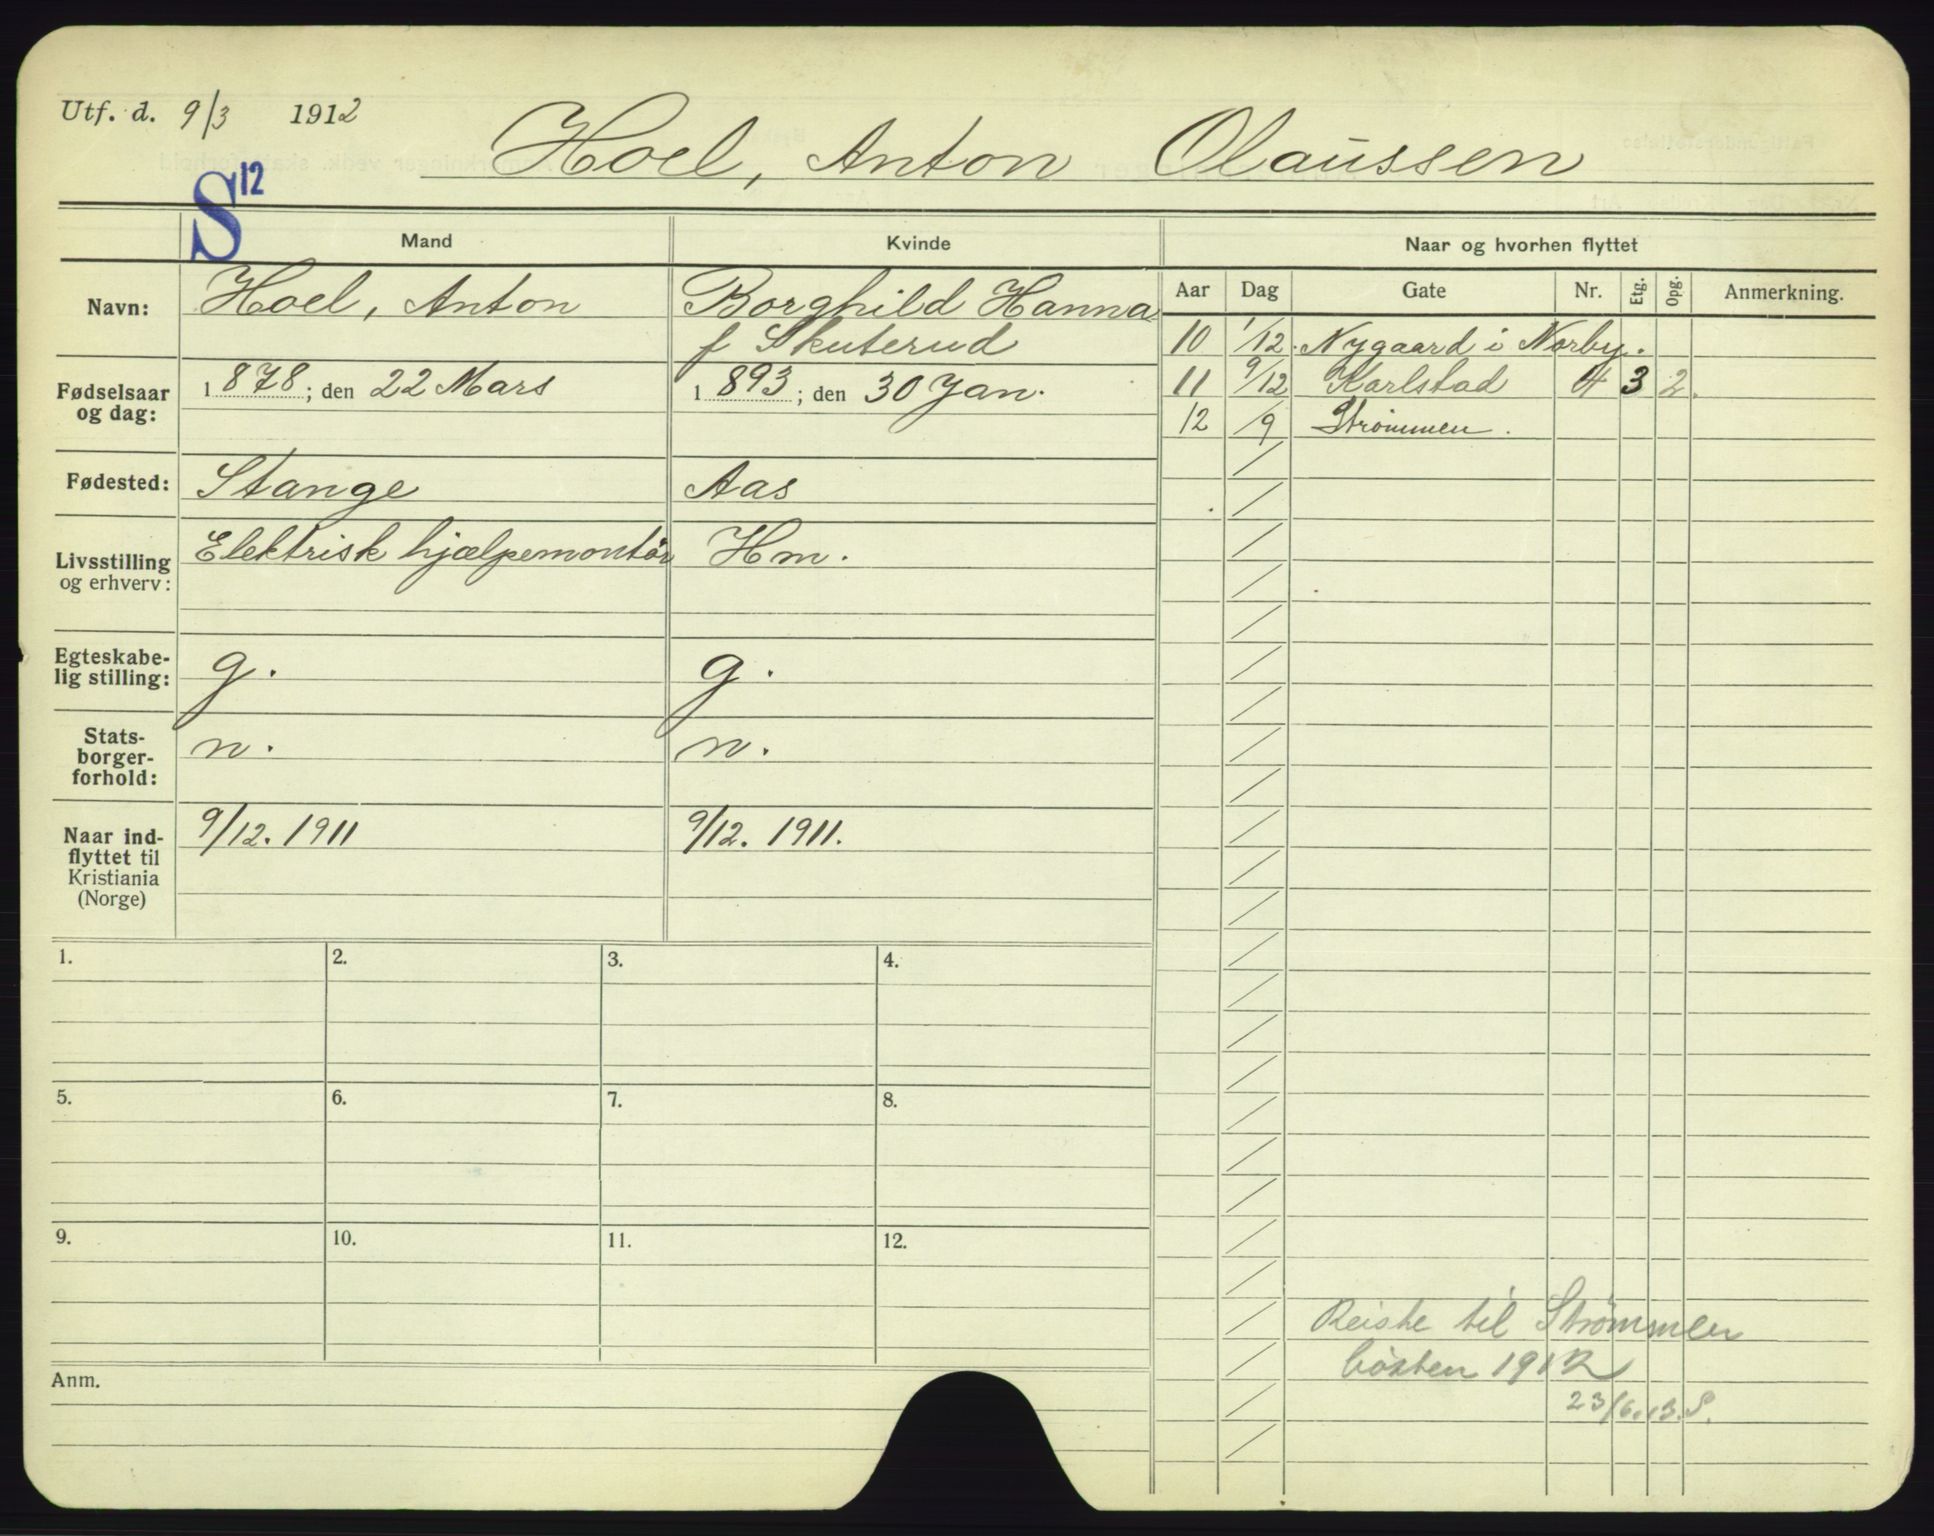 Utf. d. 9/3 1912
Hoel, Anton Olaussen
S 12
Mand
Kvinde
Naar og hvorhen flyttet
Navn:
Hoel, Anton
Borghild Hanna
f Skuterud
Aar Dag Gate Nr. Etg. Opg. Anmerkning.
10 1/12 Nygaard i Norby.
11 9/12 Karlstad 4 3 2.
12 /9 Strømmen.
Fødselsaar
og dag:
1878; den 22 Mars
1893; den 30 Jan.
Fødested:
Stange
Aas
Livsstilling
og erhverv:
Elektrisk hjælpemontør
Hm.
Egteskabe-
lig stilling:
g.
g.
Stats-
borger-
forhold:
n.
n.
Naar ind-
flyttet til
Kristiania
(Norge)
9/12. 1911
9/12. 1911.
1. 2. 3. 4.
5. 6. 7. 8.
9. 10. 11. 12.
Anm.
Reiste til Strømmen
høsten 1912
23/6.13.S.